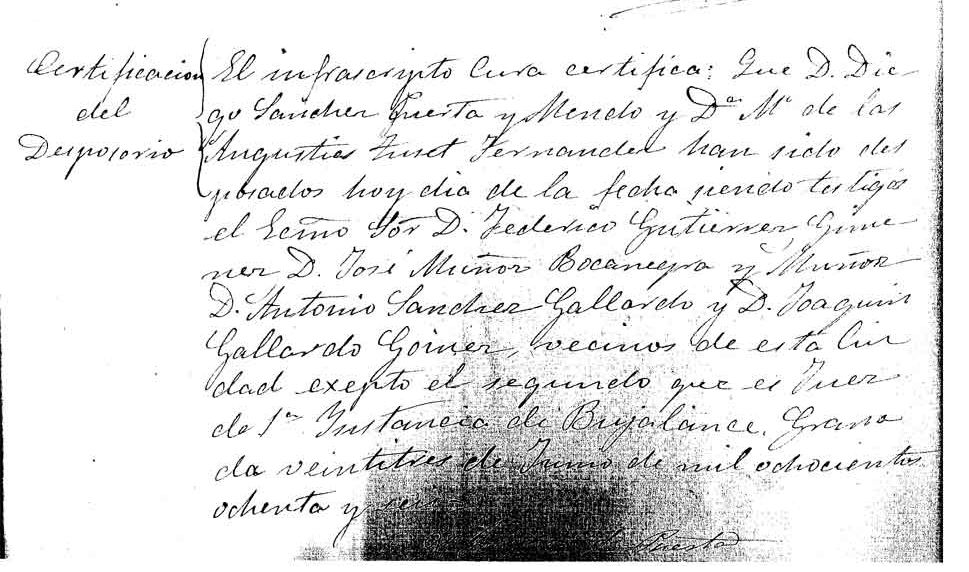 Certificacion
del
Desposorio
El infrascripto Cura certifica: Que D. Die-
go Sanchez Puerta y Mendo y Dª Mª de las
Angustias Tuset Fernandez han sido des
posados hoy dia de la fecha siendo testigos
el Ecmo Sor D. Federico Gutiérrez Gime
nez D. José Muñoz Bocanegra y Muñoz
D. Antonio Sanchez Gallardo y D. Joaquin
Gallardo Gómez, vecinos de esta Ciu
dad exepto el segundo que es Juez
de 1ª Instancia de Bujalance. Grana
da veintitres de Junio de mil ochocientos
ochenta y